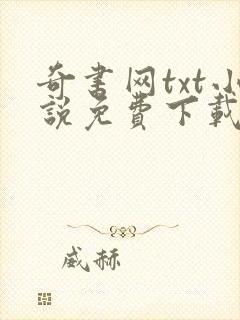 奇書网txt小
說免費下載
威赫